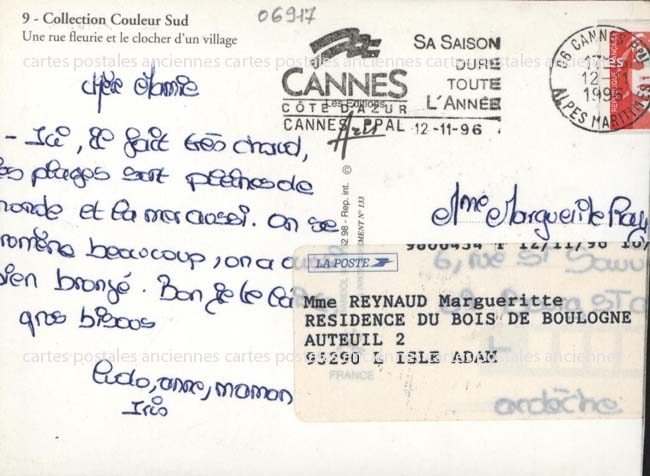 9 - Collection Couleur Sud
Une rue fleurie et le clocher d'un village
06917
CANNES
CÔTE D'AZUR
CANNES PPAL 12-11-96
SA SAISON
DURE
TOUTE
L'ANNÉE
06 CANNES PPAL
12-11
1996
ALPES MARITIMES
Les Editions
chère Mamie
- Ici, il fait très chaud,
es plages sont pleines de
monde et la mer aussi. On se
romène beaucoup, on a
bien bronzé. Bon je te
gros bisous
Ludo, anne, maman
Iris
Mme Marguerite
9800454 P 12/11/96
LA POSTE
6, rue St
Mme REYNAUD Margueritte
RESIDENCE DU BOIS DE SOULOGNE
AUTEUIL 2
95290 L ISLE ADAM
FRANCE
ardèche
98 - Rep. int. ©
N° 133
cartes postales anciennes cartes postales anciennes cartes postales anciennes cartes postales anciennes
cartes postales anciennes cartes postales anciennes cartes postales anciennes cartes postales anciennes